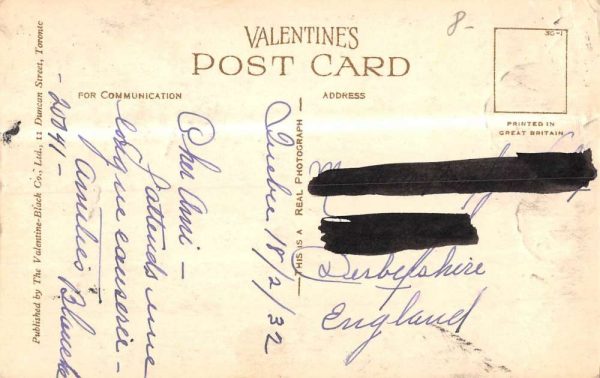 VALENTINE'S
POST CARD
8-
3G-1
FOR COMMUNICATION
ADDRESS
PRINTED IN
GREAT BRITAIN
Published by The Valentine-Black Co., Ltd., 11 Duncan Street, Toronto
THIS IS A REAL PHOTOGRAPH
Quebec 18/2/32
Cher Ami -
J'attends une
longue causerie -
Amitiés Blanche
- 20041 -
Derbyshire
England